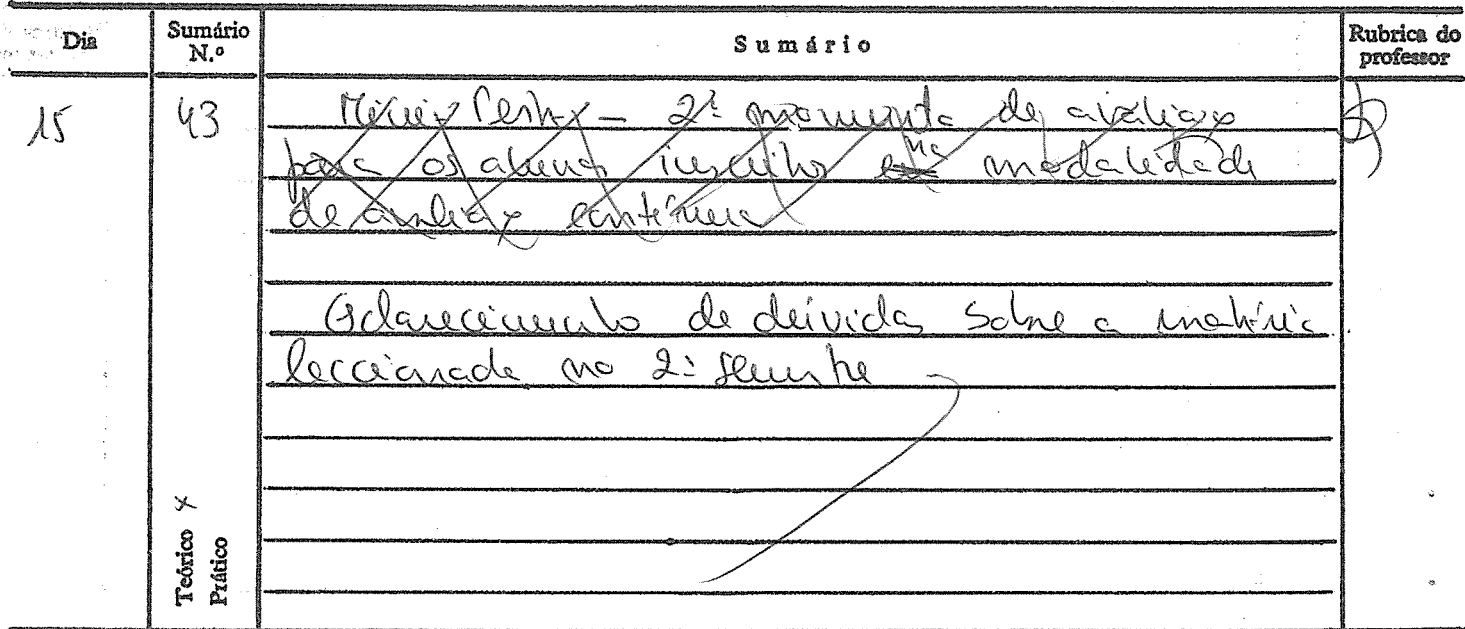 Dia
Sumário N.º
Sumário
Rubrica do professor
15
43
2º momento de avaliação
para os alunos inscritos na modalidade
de avaliação contínua
Esclarecimento de dúvidas sobre a matéria
leccionada no 2º semestre
Teórico x
Prático